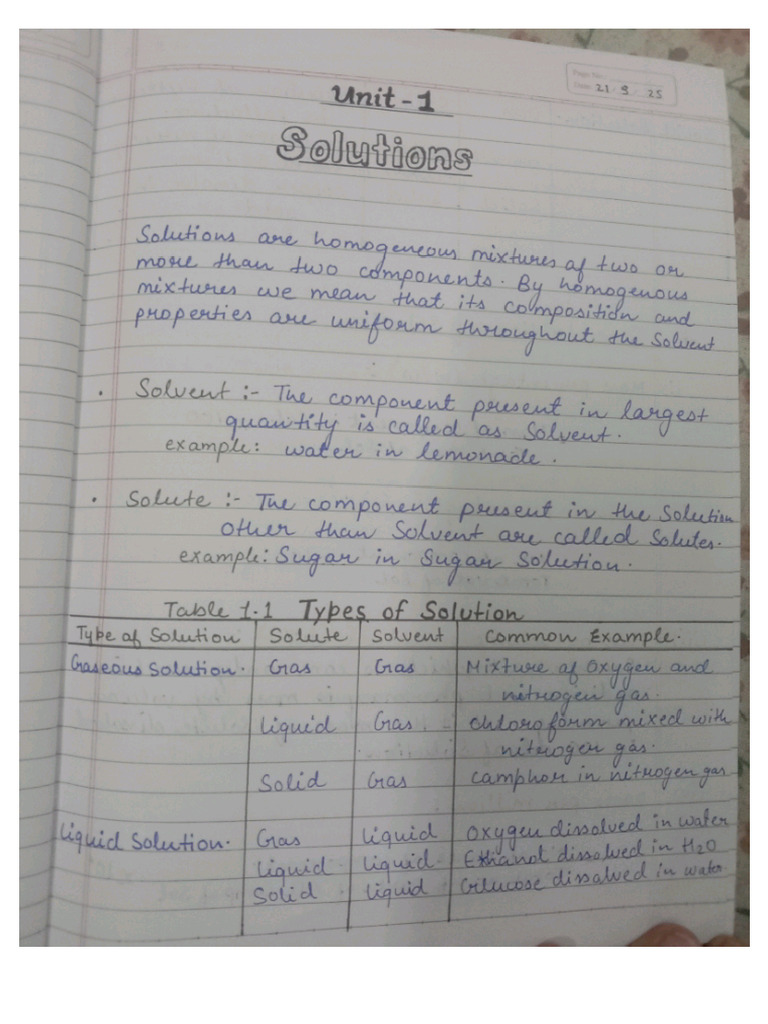 Page No.
Date: 21 . 9 . 25
Unit - 1
Solutions
Solutions are homogeneous mixtures of two or
more than two components. By homogenous
mixtures we mean that its composition and
properties are uniform throughout the Solvent
• Solvent :- The component present in largest
quantity is called as Solvent.
example: water in lemonade.
• Solute :- The component present in the Solution
other than Solvent are called Solutes.
example: Sugar in Sugar Solution.
Table 1.1 Types of Solution
Type of Solution Solute Solvent Common Example.
Gaseous Solution. Gas Gas Mixture of Oxygen and
nitrogen gas.
Liquid Gas. chloroform mixed with
nitrogen gas.
Solid Gas camphor in nitrogen gas
Liquid Solution. Gas Liquid Oxygen dissolved in water
Liquid Liquid Ethanol dissolved in H2O
Solid Liquid Glucose dissolved in water